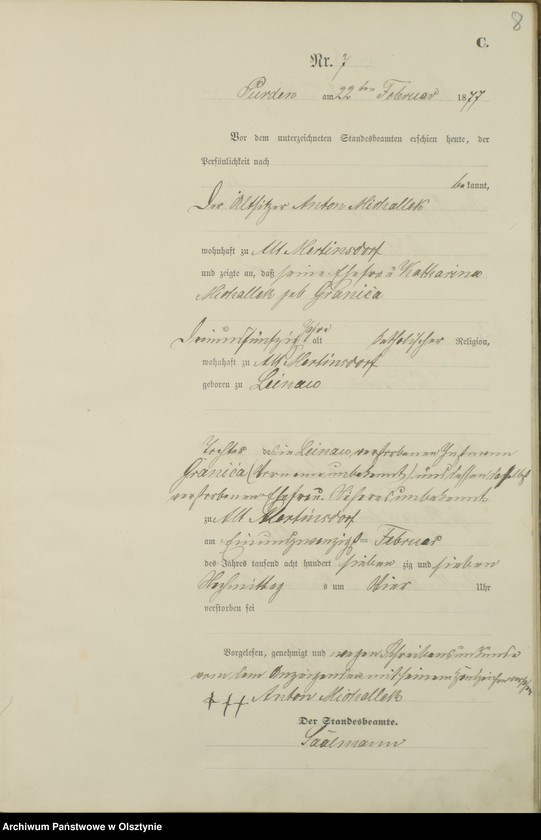 8
C.
Nr. 7
Purden am 22ten Februar 1877
Vor dem unterzeichneten Standesbeamten erschien heute, der
Persönlichkeit nach
bekannt,
Der Altsitzer Anton Michallek
wohnhaft zu Alt Mertinsdorf
und zeigte an, daß seine Ehefrau Katharina
Michallek geb Granica
Dreiundfünfzig Jahre alt katholischer Religion,
wohnhaft zu Alt Mertinsdorf
geboren zu Leinau
Tochter in Leinau verstorbenen Instmann
Granica (Vorname unbekannt) und dessen daselbst
verstorbenen Ehefrau. Näheres unbekannt
zu Alt Mertinsdorf
am Einundzwanzigsten Februar
des Jahres tausend acht hundert siebenzig und sieben
Nachmittags um Vier Uhr
verstorben sei
Vorgelesen, genehmigt und wegen Schreibensunkunde
von dem Anzeigenden mit seinem Handzeichen versehen
+ + + Anton Michallek
Der Standesbeamte.
Saalmann
Archiwum Państwowe w Olsztynie